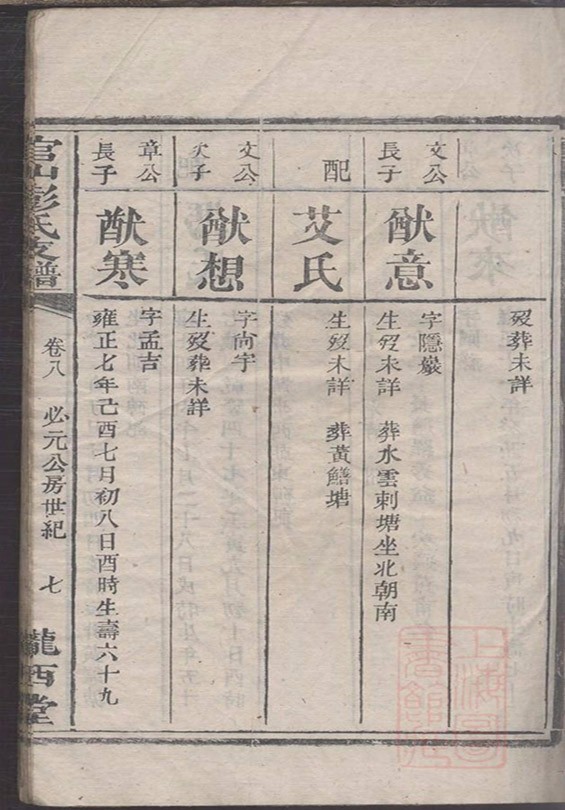 歿葬未詳
文公
長子
猷意
字隱巖
生歿未詳 葬水雲剌塘坐北朝南
配
艾氏
生歿未詳 葬黃鱔塘
文公
次子
猷想
字尙宇
生歿葬未詳
章公
長子
猷寒
字孟吉
雍正七年己酉七月初八日酉時生壽六十九
官山彭氏支譜
卷八 必元公房世紀 七
隴西堂
上海圖書館藏